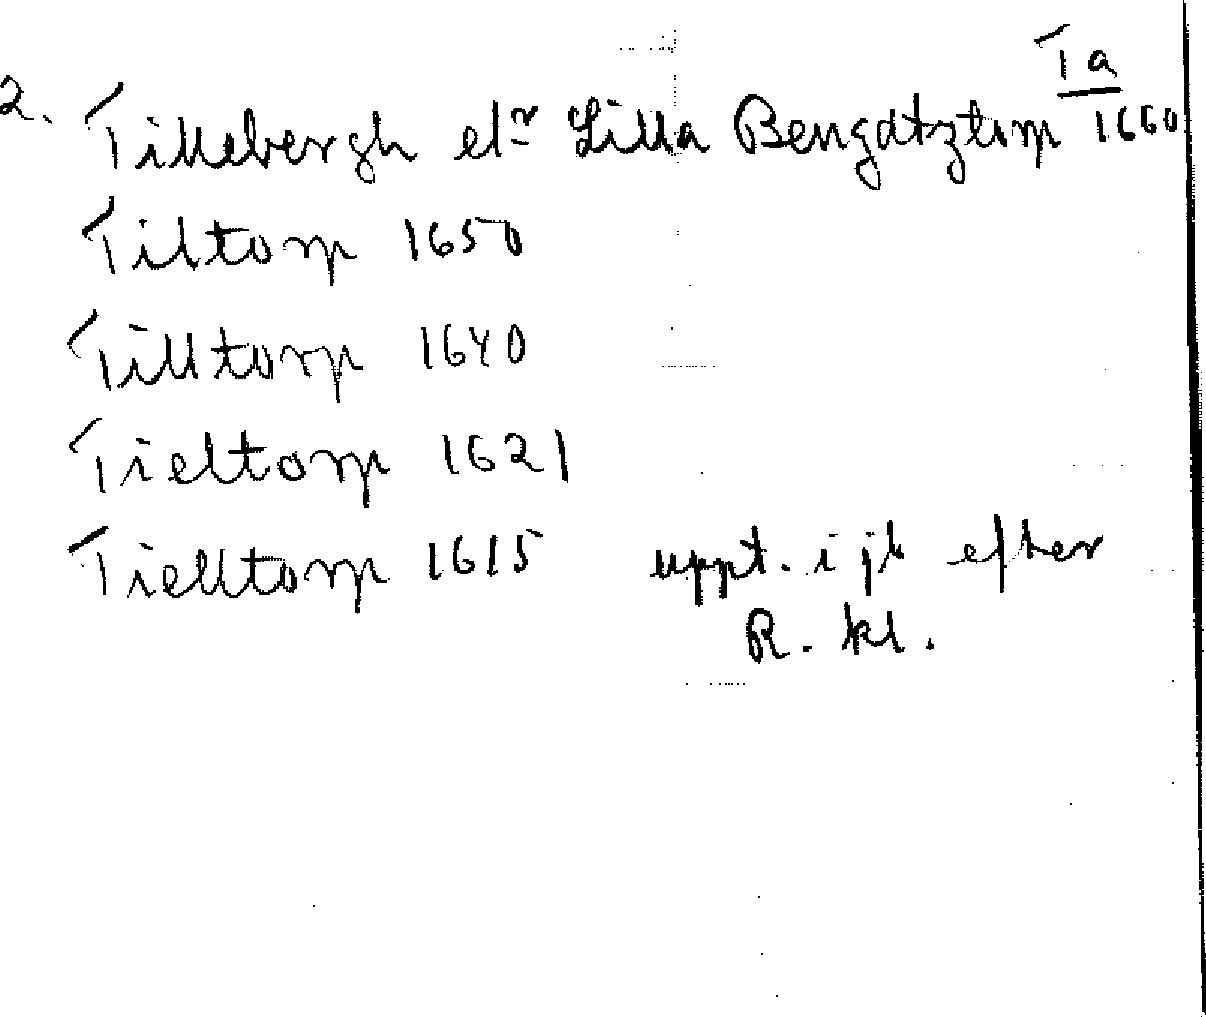 Ta
2. Tillebergh elr Lilla Bengdtztorp 1660
Tiltorp 1650
Tilltorp 1640
Tieltorp 1621
Tielltorp 1615 uppt. i jb efter
R. kl.